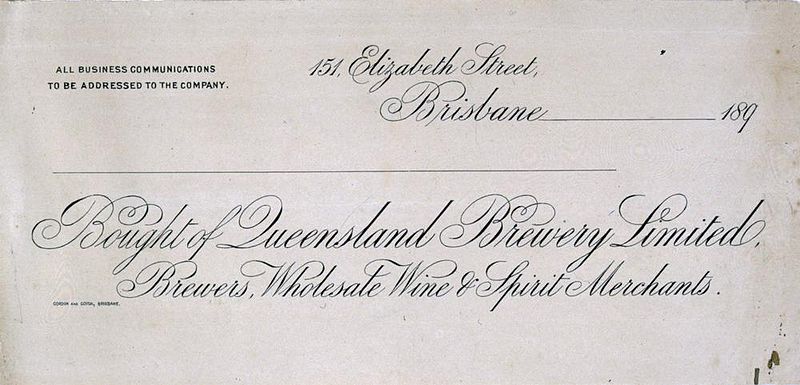 ALL BUSINESS COMMUNICATIONS
TO BE ADDRESSED TO THE COMPANY.
151, Elizabeth Street,
Brisbane 189
Bought of Queensland Brewery Limited,
Brewers, Wholesale Wine & Spirit Merchants.
GORDON AND GOTCH, BRISBANE.